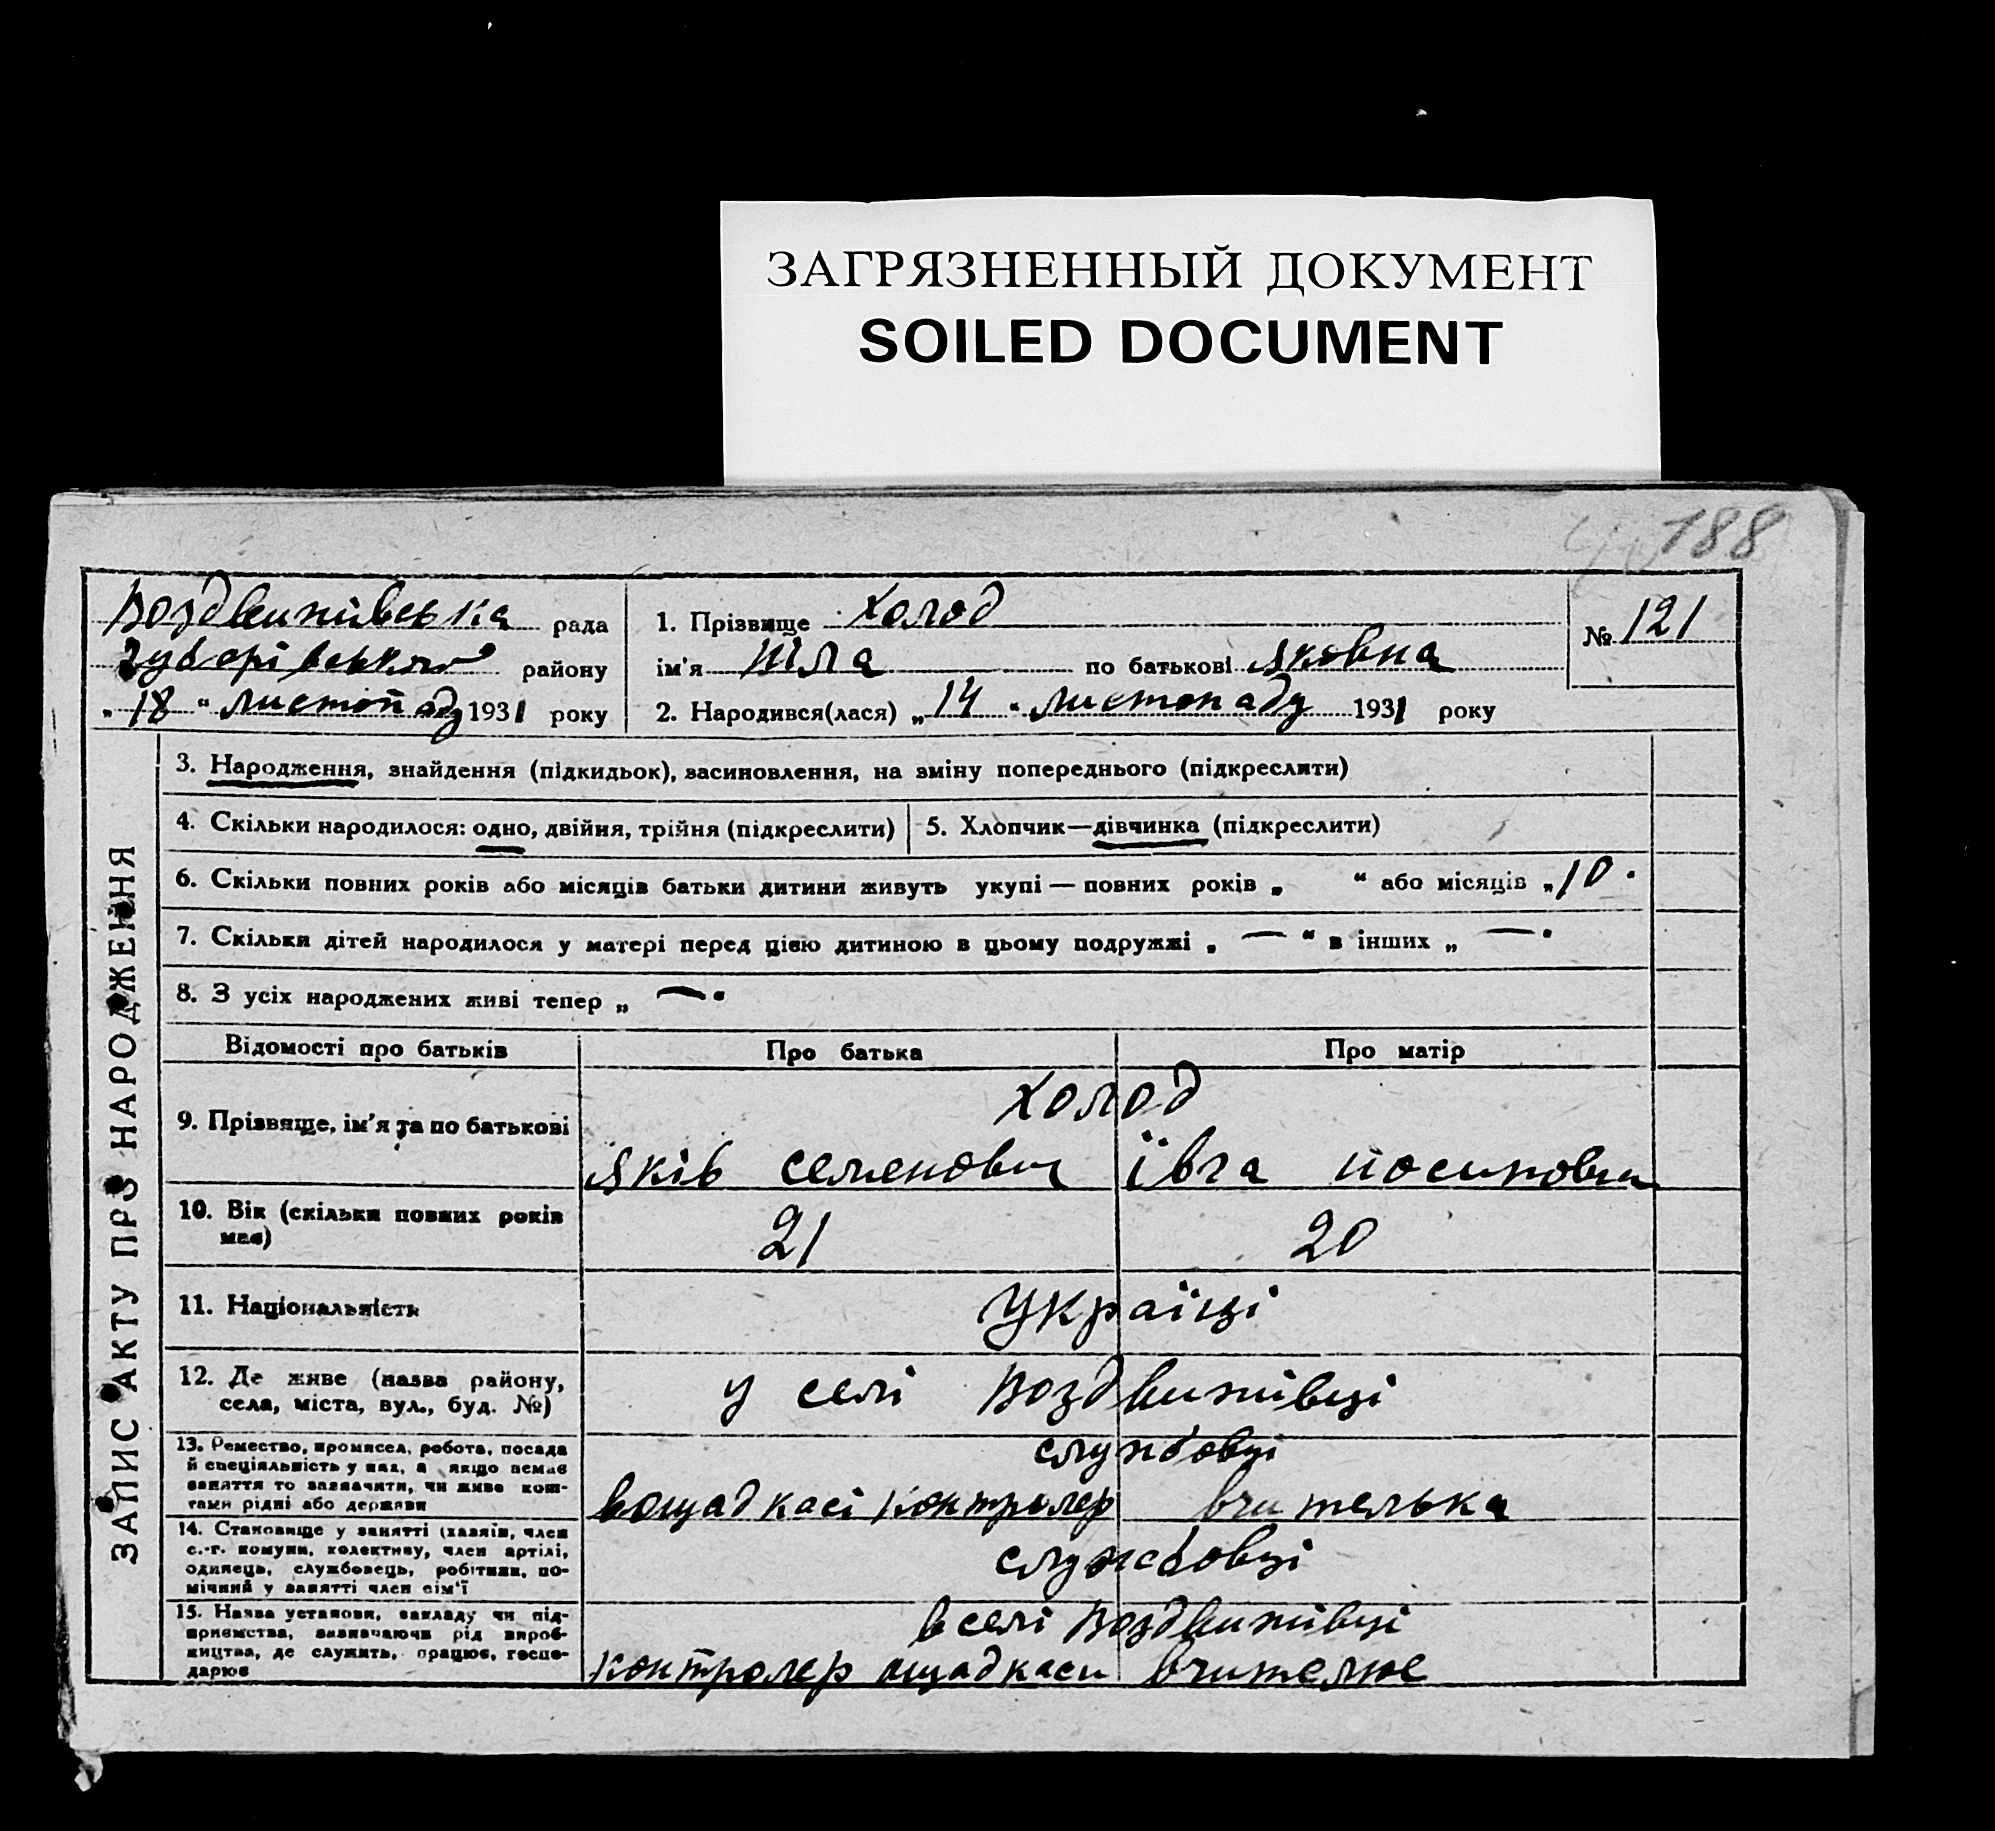 ЗАГРЯЗНЕННЫЙ ДОКУМЕНТ
SOILED DOCUMENT
188
Воздвижівська рада
району
„18“ листопаду 1931 року
1. Прізвище Холод
ім'я Ніла по батькові Яковна
2. Народився(лася) „14“ листопаду 1931 року
№ 121
ЗАПИС АКТУ ПРО НАРОДЖЕННЯ
3. Народження, знайдення (підкидьок), засиновлення, на зміну попереднього (підкреслити)
4. Скільки народилося: одно, двійня, трійня (підкреслити)
5. Хлопчик—дівчинка (підкреслити)
6. Скільки повних років або місяців батьки дитини живуть укупі — повних років „ “ або місяців „10“
7. Скільки дітей народилося у матері перед цією дитиною в цьому подружжі „ — “ в інших „ — “
8. З усіх народжених живі тепер „ — “
Відомості про батьків
Про батька
Про матір
9. Прізвище, ім'я та по батькові
Холод
Яків Семенович Ївга Йосиповна
10. Вік (скільки повних років має)
21
20
11. Національність
Українці
12. Де живе (назва району,
села, міста, вул., буд. №)
у селі Воздвижівці
13. Ремество, промисел, робота, посада
й спеціяльність у них, а якщо немає
заняття то зазначити, чи живе кош-
тами рідні або держави
службовці
в ощадкасі контролер вчителька
14. Становище у занятті (хазяїн, член
с.-г. комуни, колективу, член артілі,
одинець, службовець, робітник, по-
мічний у занятті член сім'ї
службовці
15. Назва установи, закладу чи під-
приємства, визначаючи рід вироб-
ництва, де служить, працює, госпо-
дарює
в селі Воздвижівці
контролер ощадкаси вчителює